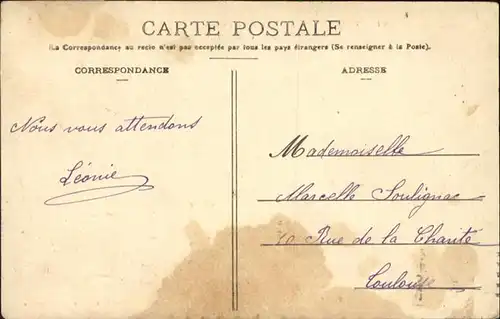 CARTE POSTALE
(La Correspondance au recto n'est pas acceptée par tous les pays étrangers (Se renseigner à la Poste).
CORRESPONDANCE
ADRESSE
Nous vous attendons
Léonie
Mademoiselle
Marcelle Soulignac
10 Rue de la Charité
Toulouse